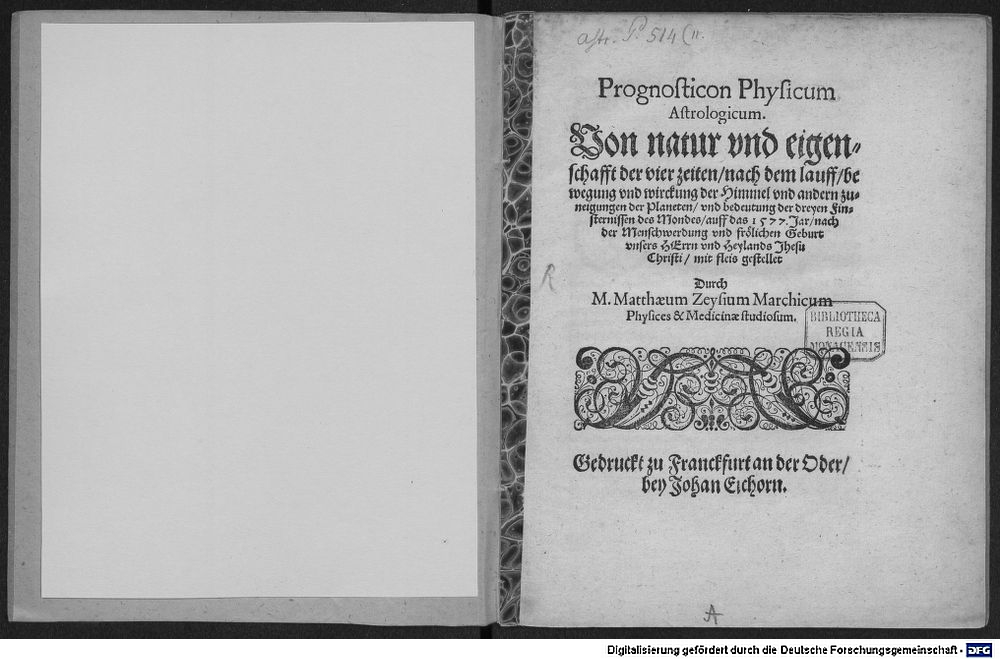 astr. P. 514 (11.
Prognoſticon Phyſicum
Aſtrologicum.
Von natur vnd eigen-
ſchafft der vier zeiten/nach dem lauff/be
wegung vnd wirckung der Himmel vnd andern zu-
neigungen der Planeten/ vnd bedeutung der dreyen Fin-
ſterniſſen des Mondes/auff das 1577. Jar/nach
der Menſchwerdung vnd frölichen Geburt
vnſers HErrn vnd Heylands Jheſu
Chriſti/ mit fleis geſtellet
Durch
M. Matthæum Zeyſium Marchicum
Phyſices & Medicinæ ſtudioſum.
R
BIBLIOTHECA
REGIA
MONACENSIS
Gedruckt zu Franckfurt an der Oder/
bey Johan Eichorn.
A
Digitalisierung gefördert durch die Deutsche Forschungsgemeinschaft - DFG